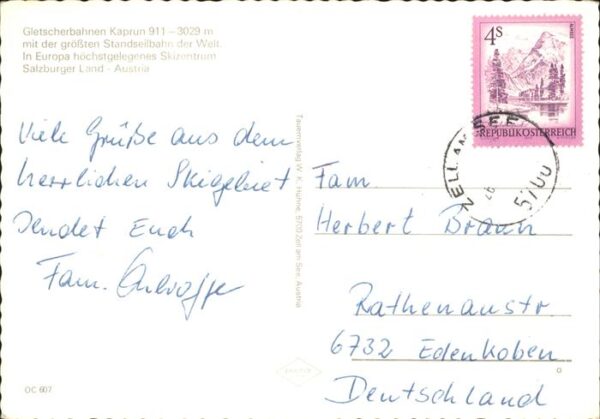 Gletscherbahnen Kaprun 911 – 3029 m
mit der größten Standseilbahn der Welt.
In Europa höchstgelegenes Skizentrum
Salzburger Land - Austria
Viele Grüße aus dem
herrlichen Skigebiet
sendet Euch
Fam.
Tauernverlag W. K. Hühne, 5700 Zell am See, Austria
4S
REPUBLIK ÖSTERREICH
ZELL AM SEE
5700
Fam
Herbert Braun
Rathenaustr
6732 Edenkoben
Deutschland
OC 607